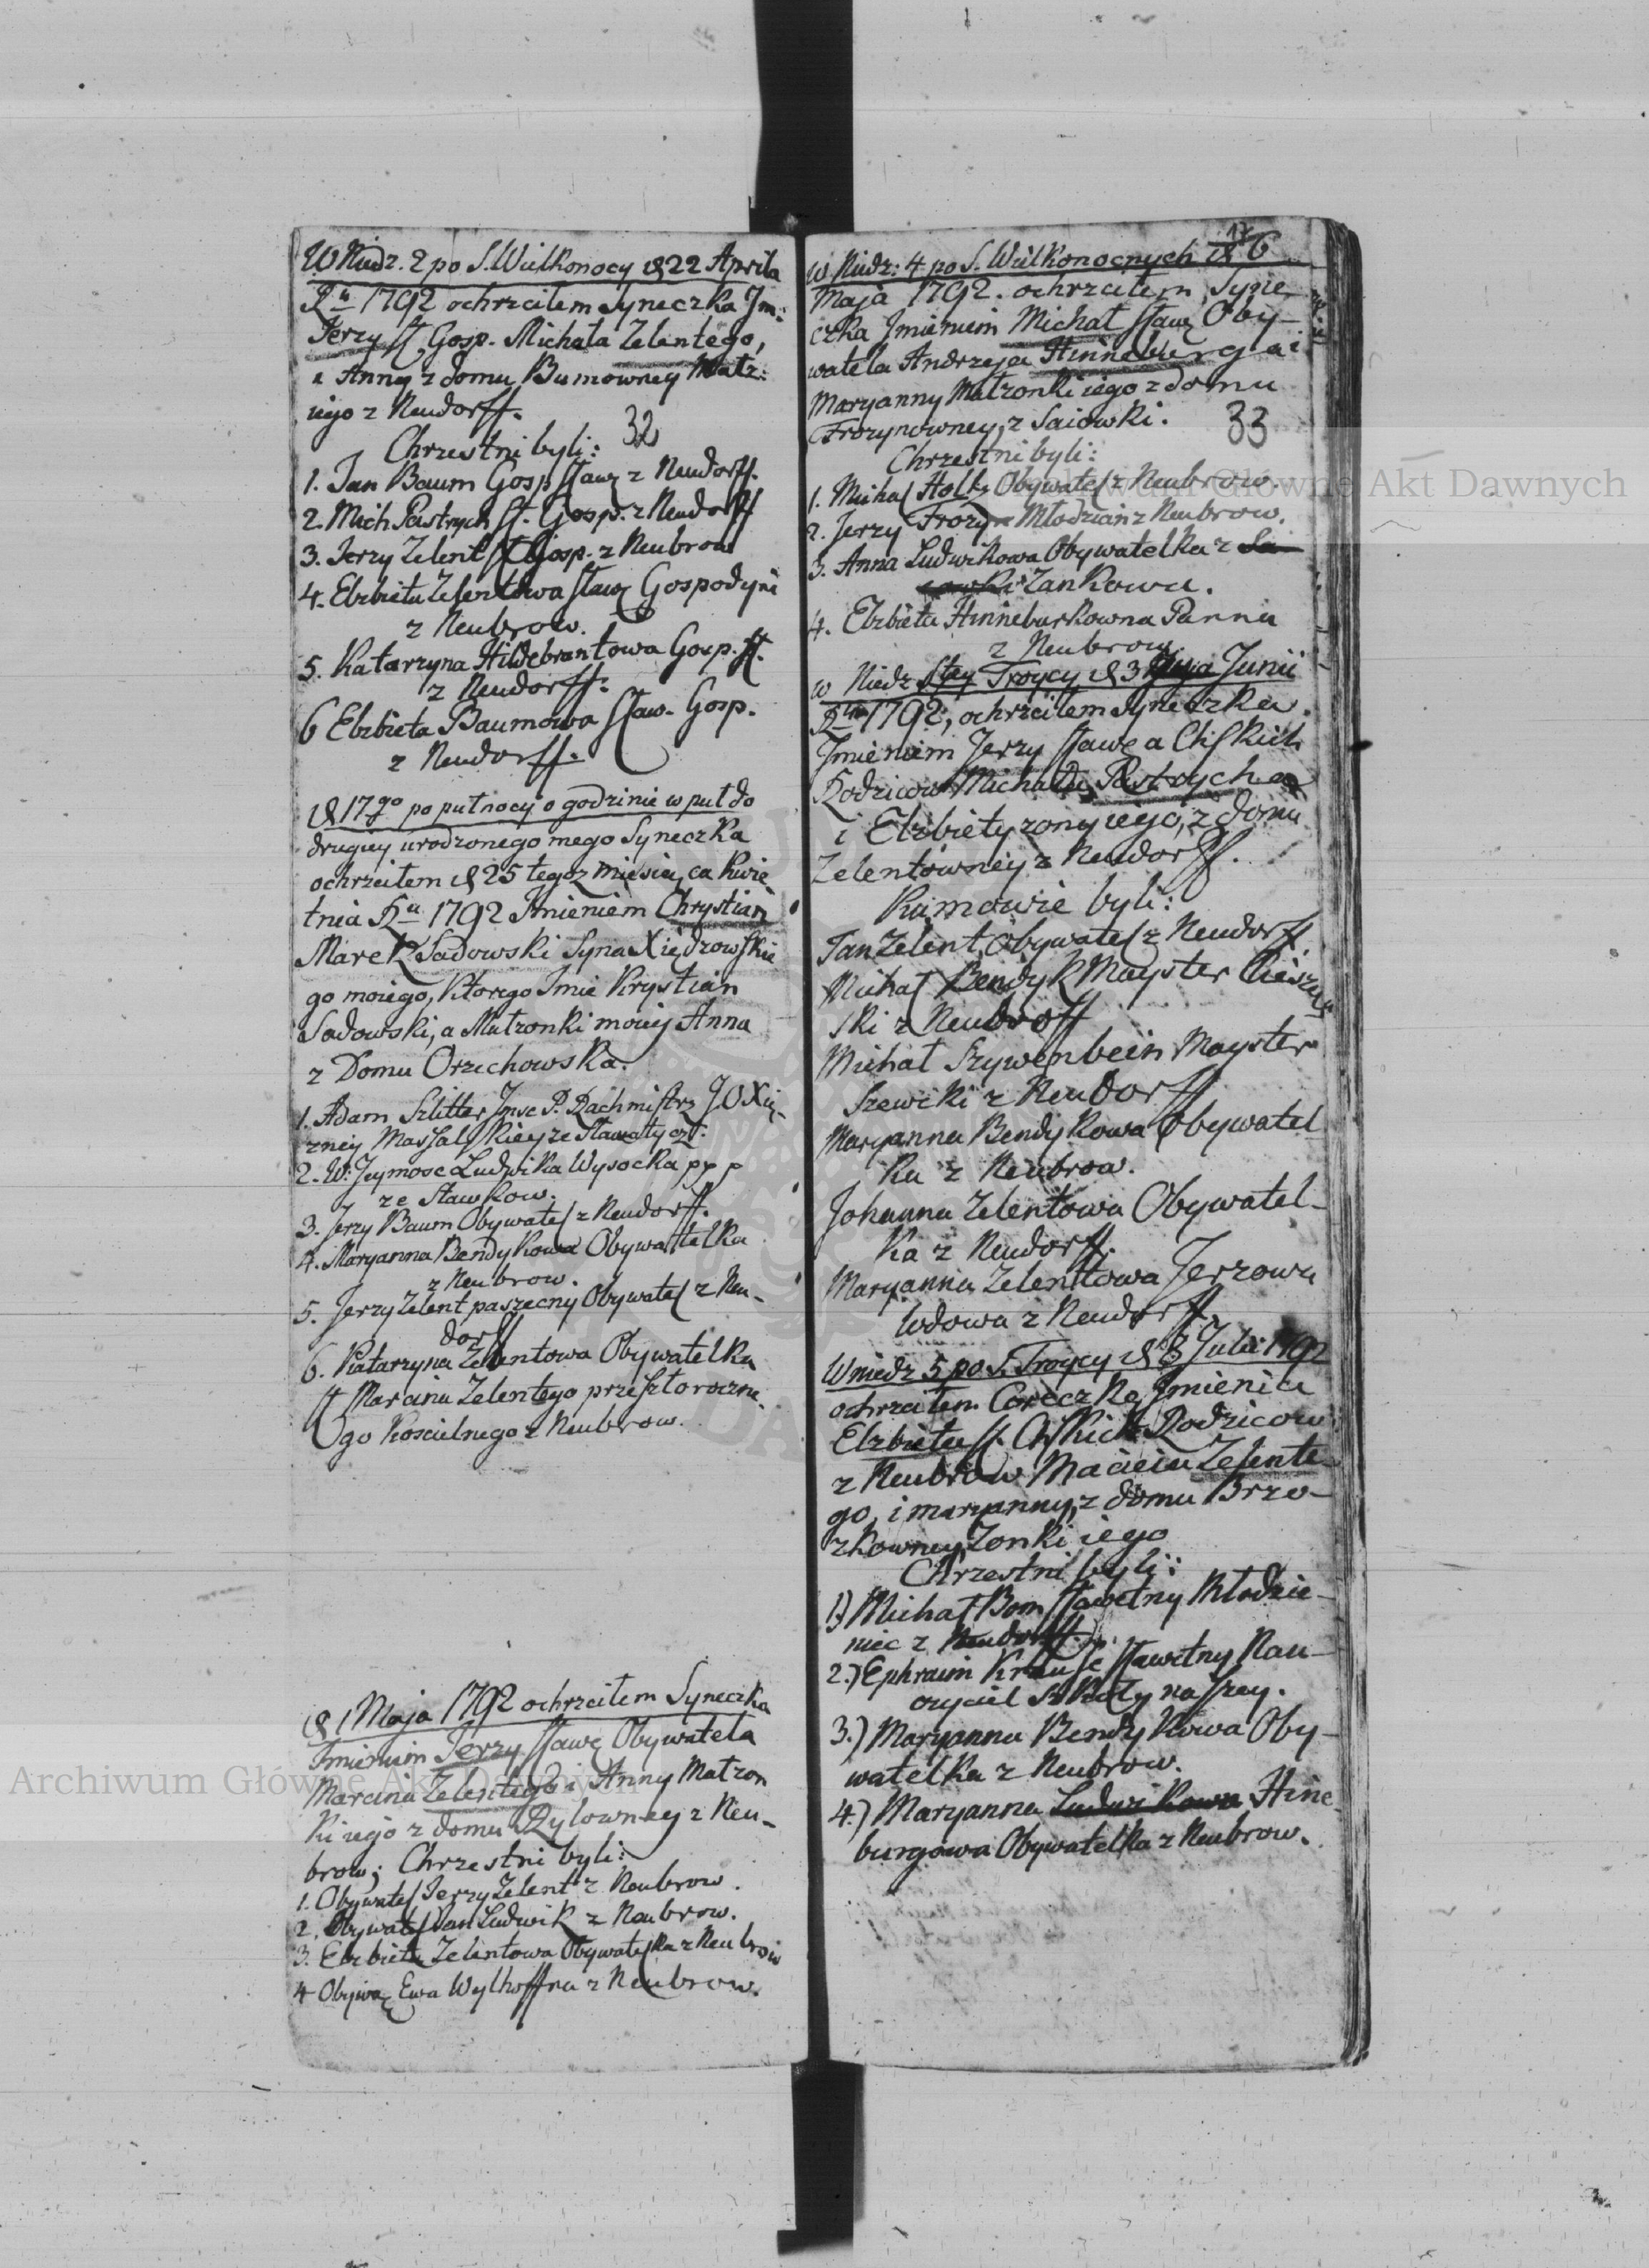 W Niedz. 2 po S. Wielkonocy d 22 Aprila
R<sup>u</sup> 1792 ochrzciłem Syneczka Jm:
Jerzy St. Gosp. Michała Zelentego,
i Anny z domu Bumowney Małz:
iego z Neudorff.
32
Chrzestni byli:
1. Jan Baum Gosp Staw z Neudorff.
2. Mich Pastrych St. Gosp. z Neudorff
3. Jerzy Zelent St Gosp. z Neubrow
4. Elzbieta Zelentowa Staw Gospodyni
z Neubrow.
5. Katarzyna Hildebrantowa Gosp. St.
z Neudorff.
6 Elzbieta Baumowa Staw. Gosp.
z Neudorff.
d 17go po pułnocy o godzinie w puł do
drugiey urodzonego mego Syneczka
ochrzciłem d 25 tegoz miesiąca Kwie
tnia R<sup>u</sup> 1792 Imieniem Chrystian
Marek Sadowski Syna Xiędzowskie
go moiego, ktorego Imie Krystian
Sadowski, a Małzonki moiey Anna
z Domu Orzechowska.
1. Adam Szlitter Jmsc P. Rachmistrz J.O Xię-
zney Massalskiey ze Sławatycz.
2. W. Jeymosc Ludwika Wysocka p p p
ze Stawkow.
3. Jerzy Baum Obywatel z Neudorff.
4. Maryanna Bendykowa Obywatelka
z Neubrow.
5. Jerzy Zelent paszecny Obywatel z Neu-
dorff
6. Katarzyna Zelentowa Obywatelka
St Marcina Zelentego przeszłoroczne-
go Koscielnego z Neubrow.
d 1 Maja 1792 ochrzciłem Syneczka
Imieniem Jerzy Stawę Obywatela
Marcina Zelentego i Anny Małzon
ki iego z domu Rylowney z Neu-
brow; Chrzestni byli:
1. Obywatel Jerzy Zelent z Neubrow.
2. Obywatel Jan Ludwik z Neubrow.
3. Elzbieta Zelentowa Obywatelka z Neubrow
4 Obywa Ewa Wylhoffna z Neubrow.
17
w Niedz: 4 po S. Wielkonocnych d 6
Maja 1792. ochrzciłem Syne
czka Imieniem Michał Stawę Oby-
watela Andrzeja Hinneburga i
Maryanny Małzonki iego z domu
Frozynowney, z Saiowki.
33
Chrzestni byli:
1. Michał Holtz Obywatel z Neubrow.
2. Jerzy Frozyn Młodzian z Neubrow.
3. Anna Ludwikowa Obywatelka z Sa-
iowki Zankowa.
4. Elzbieta Hinneburkowna Panna
z Neubrow
w Niedz Stey Troycy d 3 Junii
R<sup>u</sup> 1792, ochrzciłem Syneczka
Imieniem Jerzy Stawę a Chskich
Rodzicow Michała Pastrycha
i Elzbiety zony iego, z domu
Zelentowney z Neudorff.
Kumowie byli:
Jan Zelent Obywatel z Neudorff.
Michał Bendyk Mayster Ciesiel
ski z Neubroff
Michał Szywenbein Mayster
Szewcki z Neudorff
Maryanna Bendykowa Obywatel
ka z Neubrow.
Johanna Zelentowa Obywatel-
ka z Neudorff.
Maryanna Zelentowa Jerzowa
wdowa z Neudorff.
W niedz 5 po S. Troycy d 8 Julii 1792
ochrzciłem Coreczkę Imienia
Elzbieta St. Chskich Rodzicow
z Neubrow Macieia Zelente-
go, i maryanny, z domu Brzo-
zkowney Zonki iego
Chrzestni byli:
1) Michał Bom Stawetny Młodzie-
niec z Neudorff.
2.) Ephraim Krause Stawetny Nau-
czyciel Szkoły naszey.
3.) Maryanna Bendykowa Oby-
watelka z Neubrow.
4.) Maryanna Ludwikowa Hine-
burgowa Obywatelka z Neubrow.
Archiwum Główne Akt Dawnych
Archiwum Główne Akt Dawnych